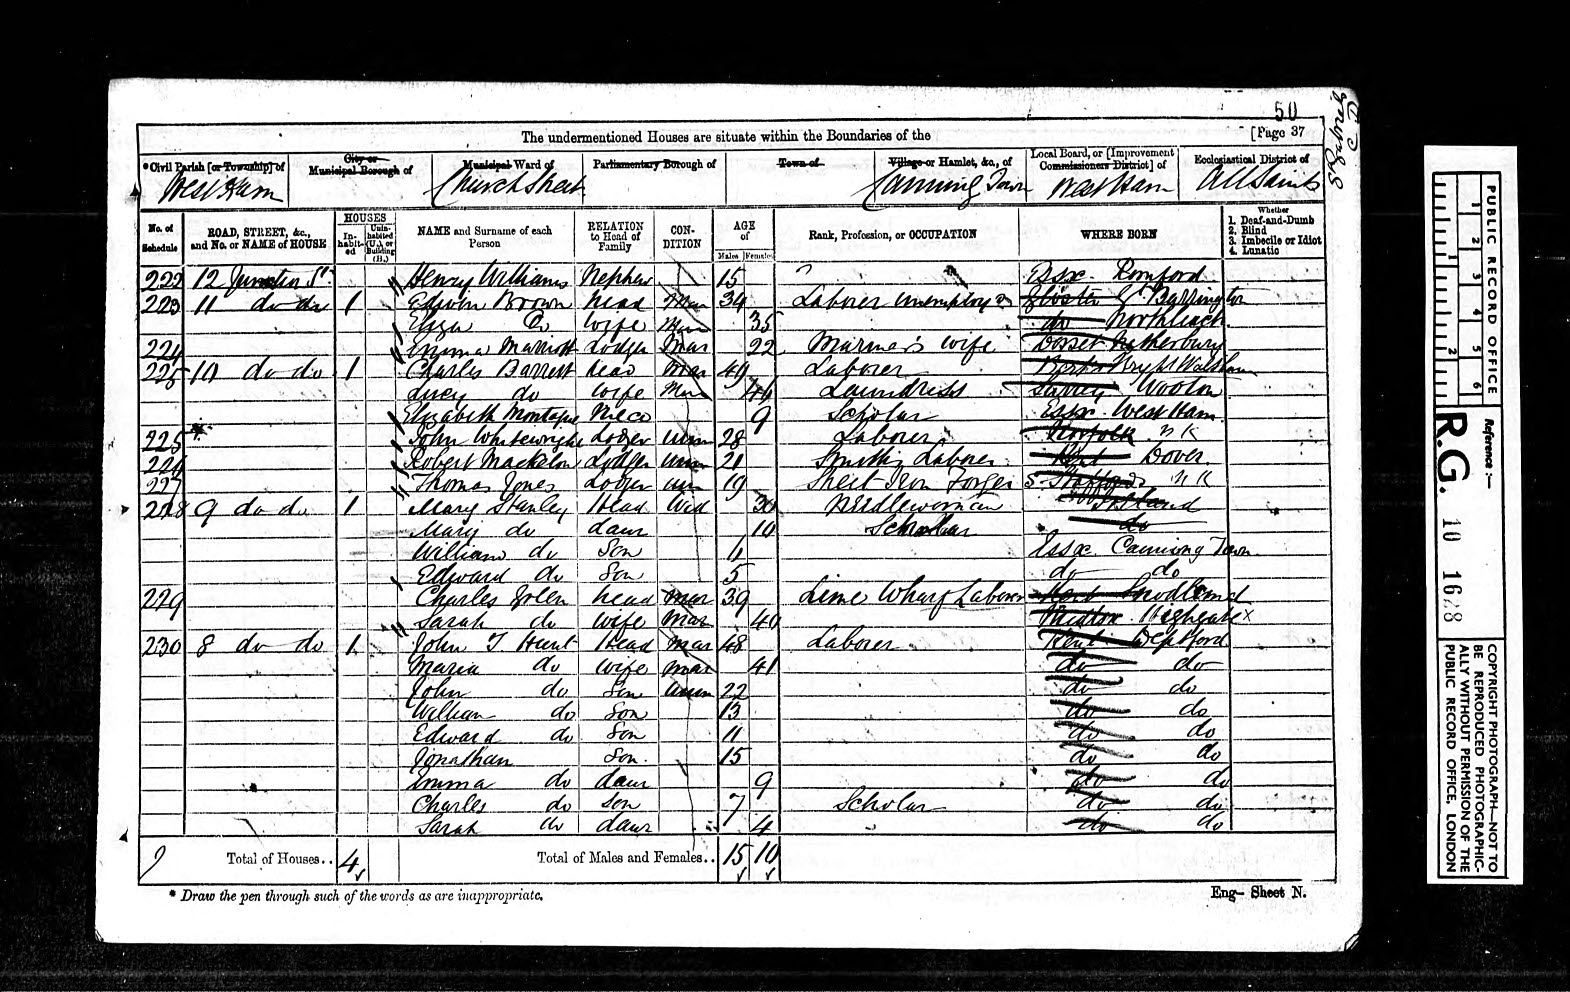 50
[Page 37
The undermentioned Houses are situate within the Boundaries of the
*Civil Parish [or Township] of
City or Municipal Borough of
Municipal Ward of
Parliamentary Borough of
Town of
Village or Hamlet, &c., of
Local Board, or [Improvement Commissioners District] of
Ecclesiastical District of
West Ham
Church Street
Canning Town
West Ham
All Saints
No. of Schedule
ROAD, STREET, &c., and No. or NAME of HOUSE
HOUSES
In-habit-ed
Unin-habited (U.), or Building (B.)
NAME and Surname of each Person
RELATION to Head of Family
CON-DITION
AGE of
Males
Females
Rank, Profession, or OCCUPATION
WHERE BORN
Whether
1. Deaf-and-Dumb
2. Blind
3. Imbecile or Idiot
4. Lunatic
222 12 Junction St Henry Williams Nephew 15 Essx. Romford
223 11 do do 1 Edwin Brown head Mar 34 Laborer unemployed Gloster Gt Barrington
Eliza Do wife Mar 35 do Northleach
224 Emma Marriott Lodger Mar 22 Mariner's wife Dorset Netherbury
225 10 do do 1 Charles Barrett head Mar 49 Laborer
Lucy do wife Mar Laundriss Surrey Wooton
Elizabeth Montague Niece 9 Scholar Essx West Ham
225 John Lodger unm 28 Laborer Norfolk N K
226 Robert Lodger unm 21 Smith's Laborer Kent Dover
227 Thomas Jones Lodger un 19 Sheet Iron Forger Stafford N K
228 9 do do 1 Mary Stanley Head Wid Needlewoman Ireland
Mary do daur 10 Scholar do
William do Son 11 Essx. Canning Town
Edward do Son 5 do do
229 Charles Green head mar 39 Lime Wharf Laborer Kent Snodland
Sarah do wife Mar 40 Middx Highgate x
230 8 do do 1 John T Hunt Head Mar 48 Laborer Kent Deptford
Maria do wife mar 41 do do
John do Son unm 22 do do
William do Son 13 do do
Edward do Son 11 do do
Jonathan Son 15 do do
Emma do daur 9 do do
Charles do Son 7 Scholar do do
Sarah do daur 4 do do
Total of Houses.. 4
Total of Males and Females.. 15 10
* Draw the pen through such of the words as are inappropriate.
Eng- Sheet N.
1 2 3 4 5 6
1 2
PUBLIC RECORD OFFICE
Reference :—
R.G. 10 1628
COPYRIGHT PHOTOGRAPH—NOT TO
BE REPRODUCED PHOTOGRAPHIC-
ALLY WITHOUT PERMISSION OF THE
PUBLIC RECORD OFFICE, LONDON